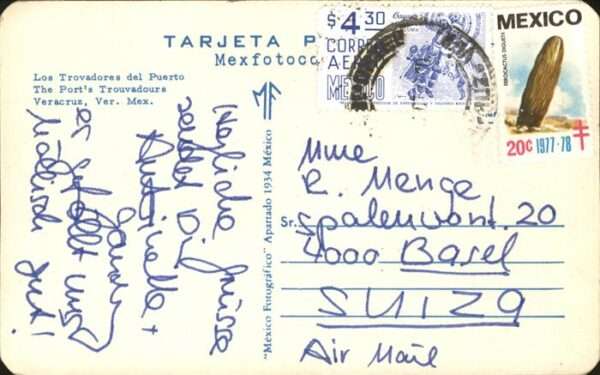 TARJETA P
Mexfotoco
Los Trovadores del Puerto
The Port's Trouvadours
Veracruz, Ver. Mex.
$4.30
CORREO
AEREO
MEXICO
MEXICO
20c 1977-78
"México Fotográfico" Apartado 1934 México
Herzliche Grüsse
sendet Dir
+
es gefällt uns
gut!
Mme
R. Menge
Sr. Spalenvorst. 20
4000 Basel
SUIZA
Air Mail